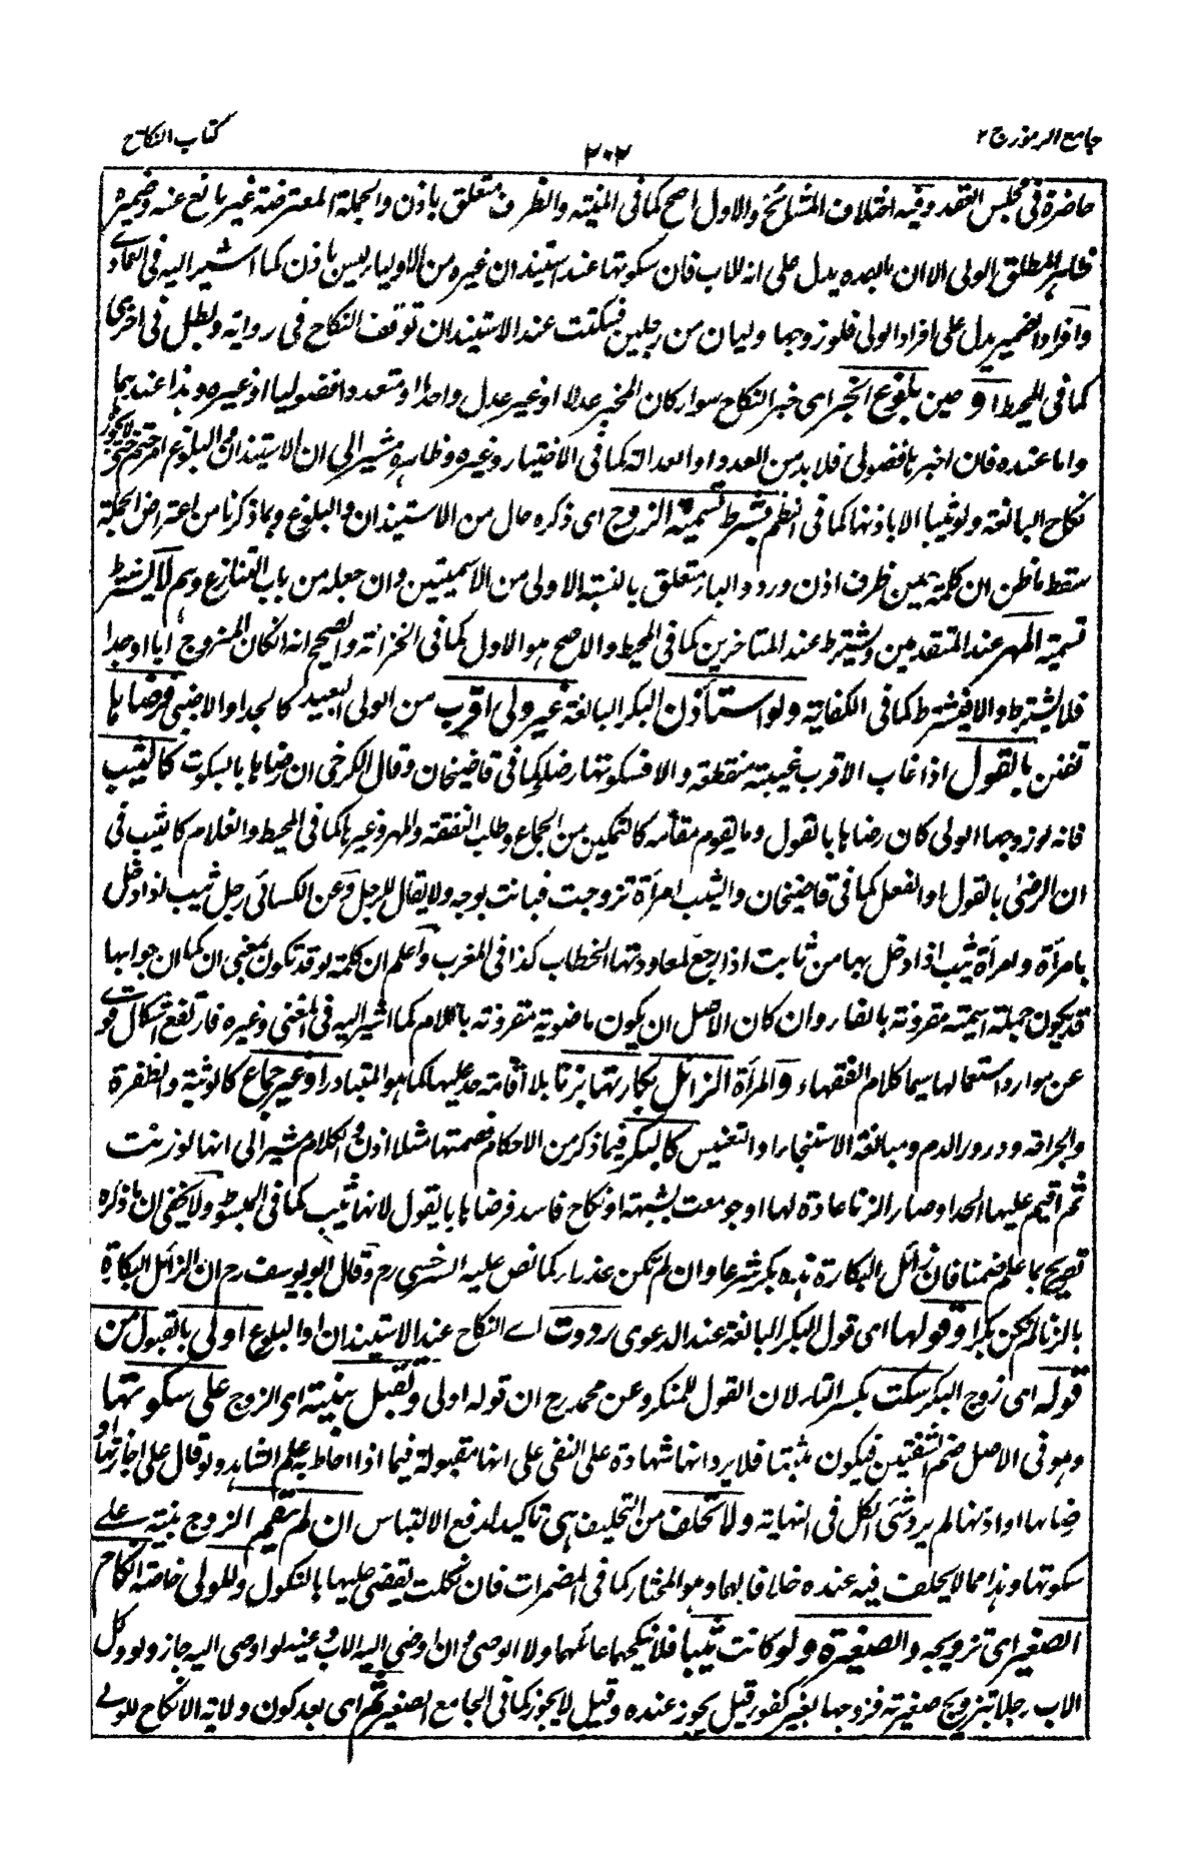 جامع الرموز ج ٢
٢٠٢
كتاب النكاح
حاضرة فى مجلس العقد وفيه اختلاف المشائخ والاول اصح كما فى المنية والظرف متعلق باذن والجملة المعترضة غير مانع عنه وضميره
ظاهر لمطلق الولى الا ان ما بعده يدل على انه للاب فان سكوتها عند استيذان غيره من الاولياء ليس باذن كما اشير اليه فى العمادى
وافراد الضمير يدل على افراد الولى فلو زوجها وليان من رجلين فسكتت عند الاستيذان توقف النكاح فى رواية وبطل فى اخرى
كما فى المحيط او حين بلوغ الخبر اى خبر النكاح سواء كان المخبر عدلا او غير عدل واحدا او متعددا فضوليا او غيره وهذا عندهما
واما عنده فان اخبرها فضولى فلا بد من العدد او العدالة كما فى الاختيار وغيره وظاهره مشير الى ان الاستيذان والبلوغ امر حتم حتى لا يجوز
نكاح البالغة ولو ثيبا الا باذنها كما فى النظم بشرط تسمية الزوج اى ذكره حال من الاستيذان والبلوغ وبما ذكرنا من اعتراض الجملة
سقط ما ظن ان كلمة حين ظرف اذن ورود الباء متعلق بالنسبة الاولى من الاسميتين وان جعله من باب التنازع وهم لا يشترط
تسمية المهر عند المتقدمين ويشترط عند المتاخرين كما فى المحيط والاصح هو الاول كما فى الخزانة والصحيح انه ان كان المزوج ابا او جدا
فلا يشترط والا فيشترط كما فى الكفاية ولو استأذن البكر البالغة غير ولى اقرب من الولى البعيد كالجد او الاجنبى فرضاها
بالقول اذا غاب الاقرب غيبة منقطعة والا فسكوتها رضا كما فى قاضيخان وقال الكرخى ان رضاها بالسكوت كالثيب
فانه لو زوجها الولى كان رضاها بالقول وما يقوم مقامه كالتمكين من الجماع وطلب النفقة والمهر وغيرها كما فى المحيط والغلام كالثيب فى
ان الرضى بالقول او الفعل كما فى قاضيخان والثيب امرأة تزوجت فبانت بوجه ولا يقال للرجل وعن الكسائى رجل ثيب اذا دخل
بامرأة وامرأة ثيب اذا دخل بها من ثابت اذا رجع لمعاودتها الخطاب كذا فى المغرب واعلم ان كلمة لو قد تكون بمعنى ان كما ان جوابها
قد يكون جملة اسمية مقرونة بالفاء وان كان الاصل ان يكون ماضوية مقرونة باللام كما اشير اليه فى المغنى وغيره فارتفع اشكال قوى
عن موارد استعمالها سيما كلام الفقهاء والمرأة الزائل بكارتها بزنا بلا اقامة حد عليها كما هو المتبادر او غير جماع كالوثبة والطفرة
والجراحة ودرور الدم ومبالغة الاستنجاء او التعنيس كالبكر فيما ذكر من الاحكام فصمتها مثلا اذن وفى الكلام مشير الى انها لو زنت
ثم اقيم عليها الحد او صار الزنا عادة لها او جومعت بشبهة او نكاح فاسد فرضاها بالقول لانها ثيب كما فى المبسوط ولا يخفى ان ما ذكره
تصريح بما علم ضمنا فان زائل البكارة بهذه بكر شرعا وان لم تكن عذراء كما نص عليه السرخسى رح وقال ابو يوسف رح ان الزائل البكارة
بالزنا لم يكن بكرا وقولها اى قول البكر البالغة عند الدعوى رددت اے النكاح عند الاستيذان او البلوغ اولى بالقبول من
قوله اى زوج البكر سكت بكسر التاء لان القول للمنكر وعن محمد رح ان قوله اولى وتقبل بينته اى الزوج على سكوتها
وهو فى الاصل ضم الشفتين فيكون مثبتا فلا يرد انها شهادة على النفى على انها مقبولة فيما اذا احاط به علم الشاهد ولو قال على اجازتها او
رضاها او اذنها لم يرد شئ الكل فى النهاية ولا تحلف من التحليف هى تاكيد لدفع الالتباس ان لم يقم الزوج بينة على
سكوتها وهذا مما لا يحلف فيه عنده خلافا لهما وهو المختار كما فى المضمرات فان نكلت يقضى عليها بالنكول وللولى خاصة انكاح
الصغير اى تزويجه والصغيرة ولو كانت ثيبا فلا ينكحهما عائلهما ولا الوصى وان اوصى اليه الاب وعنه لو اوصى اليه جاز ولو وكل
الاب رجلا بتزويج صغيرته فزوجها بغير كفو قيل يجوز عنده وقيل لا يجوز كما فى الجامع الصغير ثم اى بعد كون ولاية الانكاح للولى